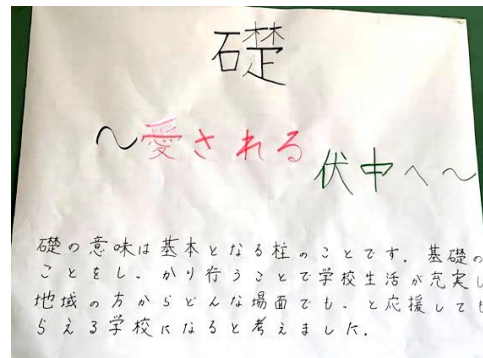 礎
〜愛される
伏中へ〜
礎の意味は基本となる柱のことです。基礎の
ことをしっかり行うことで学校生活が充実し
地域の方からどんな場面でも、と応援しても
らえる学校になると考えました。